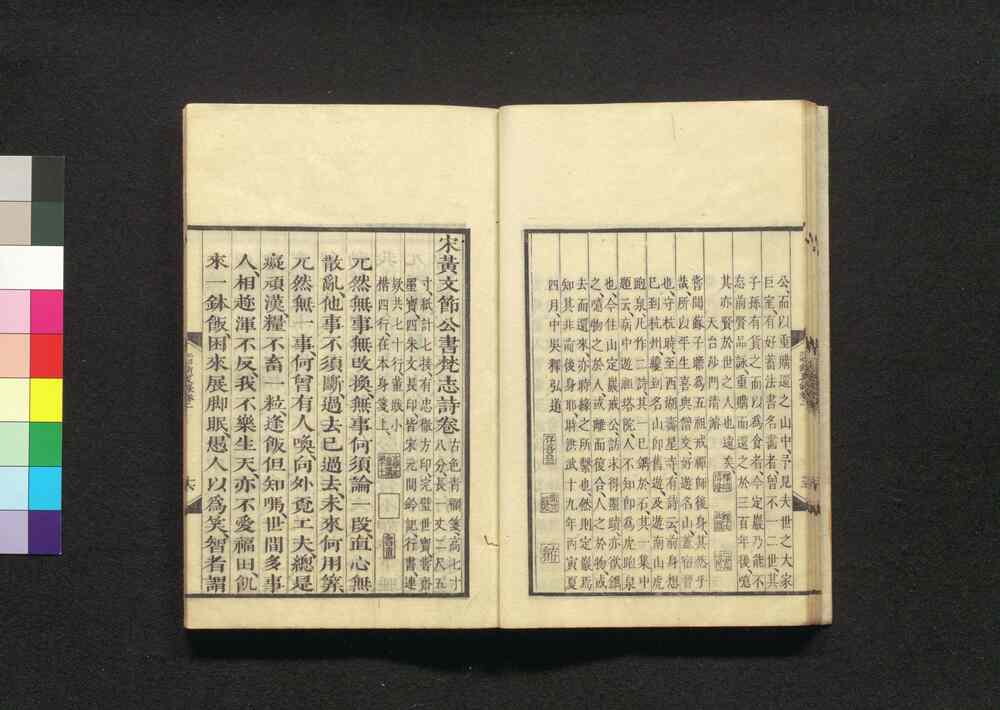 公而以重購還之山中予見大世之大家
巨室有好蓄法書名畫者曾不一二世其
子孫有貨之而以為食者今定巖乃能不
忘前賢品詠重購而還之於三百年後噫
其亦賢於世之人也遠矣
天台沙門清濬
嘗聞蘇子瞻為五祖戒禪師後身其然乎
哉所以平生喜與僧交好遊名山蓋宿昔
也守杭時至西湖壽星寺有詩云前身想
已到杭州纔到名山即舊遊及遊南山虎
跑泉凡作二詩其一已鐫於石其一集中
題云病中遊祖塔院人不知即為虎跑泉
也今住山定巖戒公訪求得墨蹟亦欲鐫
之噫物之於人或離而復合人之於物或
去而還來亦時緣之所繫也然則定巖焉
知其非前後身耶洪武十九年丙寅夏
四月中吳釋弘道
宋黃文節公書梵志詩卷
古色青藤箋高七寸
八分長一丈二尺五
寸紙計七接有忠徹方印完璧世寶嘗齋
墨寶四朱文長印皆宋元間鈐記行書連
欵共七十行董跋小
楷四行在本身箋上
兀然無事無改換無事何須論一段直心無
散亂他事不須斷過去已過去未來何用算
兀然無一事何曾有人喚向外覓工夫總是
癡頑漢糧不畜一粒逢飯但知嗎世間多事
人相趁渾不反我不樂生天亦不愛福田飢
來一鉢飯困來展脚眠愚人以為笑智者謂
六